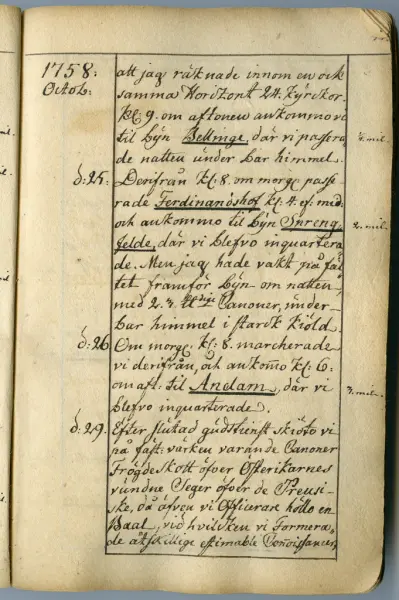 1758: att jag räknade innom en och
Octob: samma Horizont 24. Kyrckor.
Kl. 9. om aftonen ankommo vi
til byn Bellinge, där vi passera
de natten under bar himmel.
d: 25. Derifrån kl: 8. om morg: passe-
rade Ferdinandshof kl: 4. ef: mid
och ankommo til byn Spreng
felde, där vi blefvo inquartera
de. Men jag hade vakt på fäl
tet framför byn om natten,
med 2. 3. Canoner, under
bar himmel i starck kiöld.
d: 26 Om morg: kl: 8. marcherade
vi derifrån, och ankom̅o kl: 6:
om aft: til Andam, där vi
blefvo inquarterade.
d: 29. Efter slutad gudstienst skiöto vi
på fäst: värken varande Canoner
Frögdeskott öfver Österikarnes
vundne Seger öfver de Preusi-
ske, då äfven vi Officerare höllo en
Baal, vid hvilcken vi formera-
de åtskillige estimable Connoissancer,
mil.
2. mil.
3. mil.